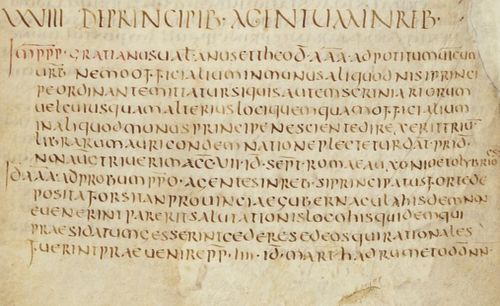 XXVIII DE PRINCIPIB· AGENTUM IN REB·
IMPPP· GRATIANUS UALT ANUS ET THEOD· AAA· AD POTITUM UICUM
URB· NEMO OFFICIALIUM IN MUNUS ALIQUOD NISI PRINCI
PE ORDINANTE MITTATUR SIQUIS AUTEM SCRINIARIORUM
UEL CUIUSQUAM ALTERIUS LOCI QUEMQUAM OFFICIALIUM
IN ALIQUOD MUNUS PRINCIPE NESCIENTE DIREXERIT TRIUM
LIBRARUM AURI CONDEMNATIONE PLECTETUR DAT· PRID·
NON· AUCT RIUERI M ACC· VII· ID· SEPT· ROMAE AUXONIO ET OLYBRIO CS·
IDD AAA· AD PROBUM PPO· AGENTES IN REB· SI PRINCIPATUS FORTE DE
POSITA FORS HAN PROUINCIAE GUBERNACULA HIS DEM NON
EUENERINT PARERIT SALUTATIONIS LOCO HIS QUIDEM QUI
PRAESIDATUM GESSERINT CEDERE SED EOS QUI RATIONALES
FUERINT PRAEUENIRE PP· IIII· ID· MART· HADRUMETO DD· NN·